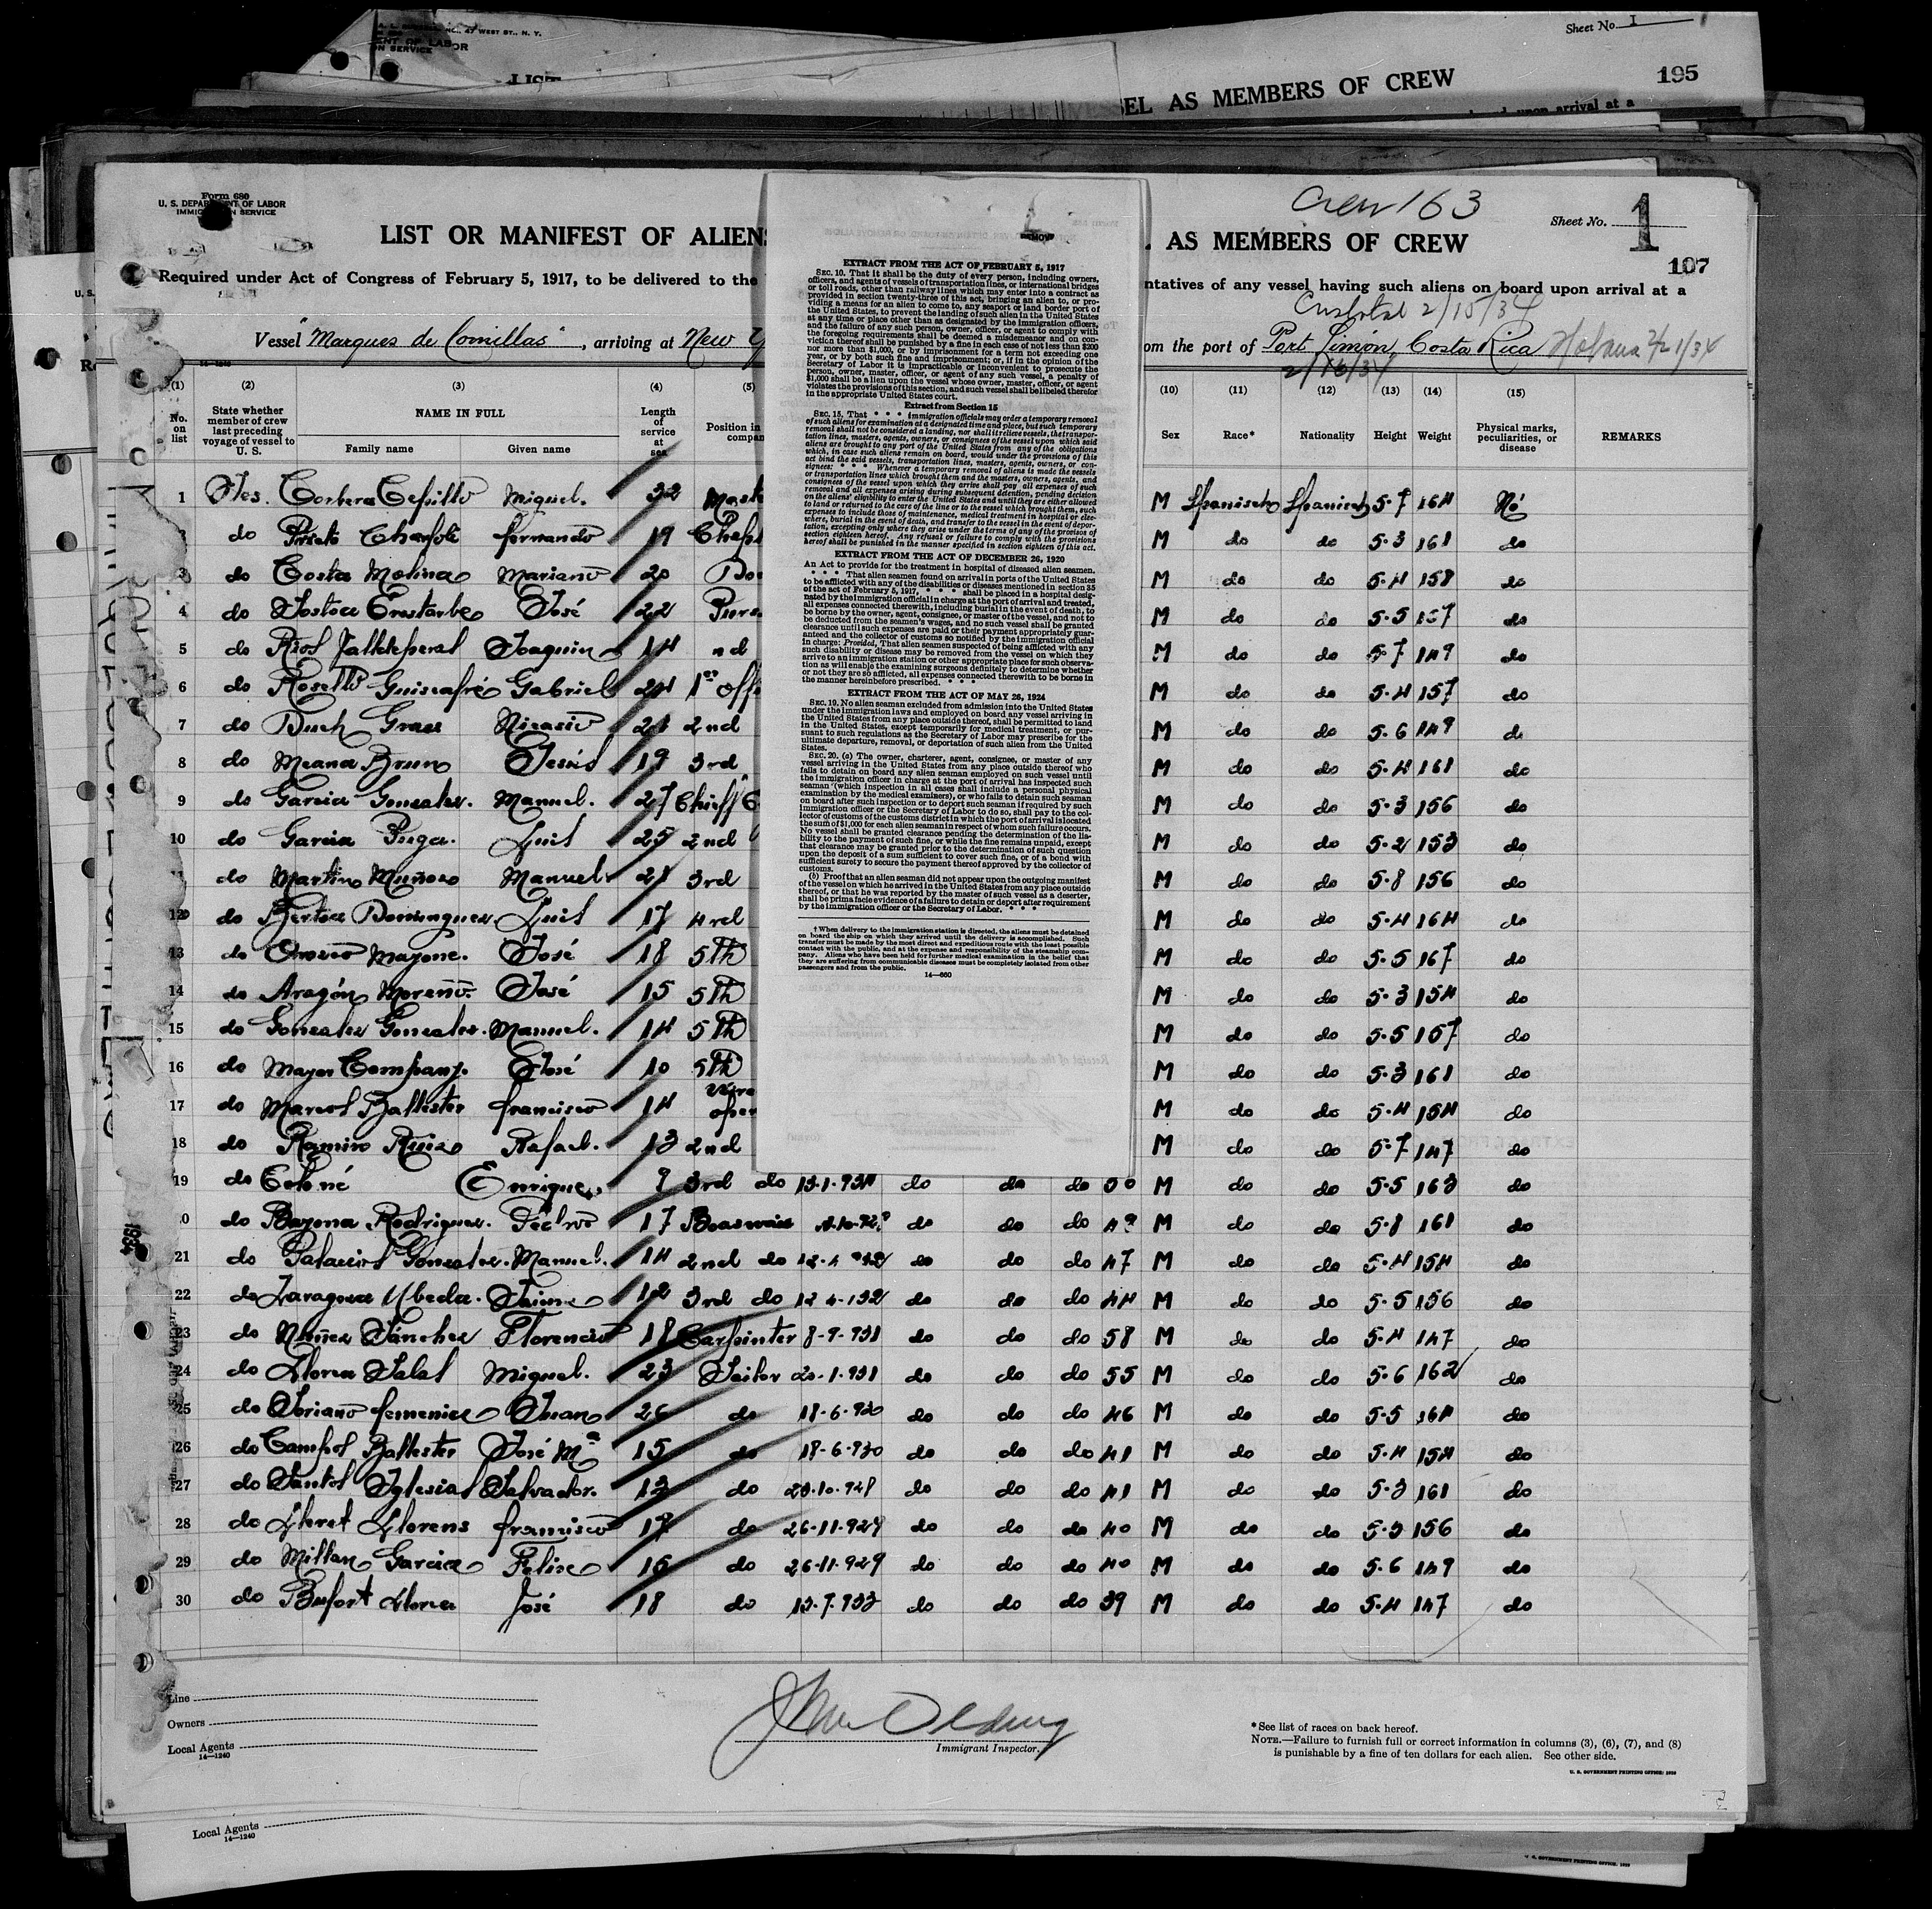 Sheet No. I
A. L. NO., 47 WEST ST., N. Y.
ENT OF LABOR
ON SERVICE
LIST
EL AS MEMBERS OF CREW
195
upon arrival at a
Form 680
U. S. DEPARTMENT OF LABOR
IMMIGRATION SERVICE
Crew 163
Sheet No. 1
LIST OR MANIFEST OF ALIENS
AS MEMBERS OF CREW
107
Required under Act of Congress of February 5, 1917, to be delivered to the
ntatives of any vessel having such aliens on board upon arrival at a
Cristobal 2/15/34
Vessel "Marques de Comillas", arriving at New Y
om the port of Port Limón, Costa Rica Habana 2/21/34
2/16/34
14-1240
(1) (2) (3) (4) (5)
(10) (11) (12) (13) (14) (15)
No. on list
State whether member of crew last preceding voyage of vessel to U. S.
NAME IN FULL
Family name Given name
Length of service at sea
Position in compan
Sex Race* Nationality Height Weight
Physical marks, peculiarities, or disease
REMARKS
1 Miguel. 32 Mast M Spanisch Spanisch 5-7 164 Nó
do fernando 19 M do do 5-3 161 do
3 do Costa Molina Mariano 20 M do do 5-4 158 do
4 do José 22 Purs M do do 5-5 157 do
5 do Joaquin 14 nd M do do 5-7 149 do
6 do Gabriel 24 1er offi M do do 5-4 157 do
7 do Nicasio 21 2nd M do do 5-6 149 do
8 do Meana Bruno Jesús 19 3rd M do do 5-4 161 do
9 do Garcia Gonzalez. Manuel. 27 Chieff M do do 5-3 156 do
10 do Garcia Puga. Luis 25 2nd M do do 5-2 153 do
do Manuel. 21 3rd M do do 5-8 156 do
12 do Dominguez. Luis 17 4rd M do do 5-4 164 do
13 do José 18 5th M do do 5-5 167 do
14 do Aragón Moreno. José 15 5th M do do 5-3 154 do
15 do Gonzalez Gonzalez. Manuel. 14 5th M do do 5-5 157 do
16 do Mayor Company. José 10 5th M do do 5-3 161 do
17 do Ballester francisco 14 oper M do do 5-4 154 do
18 do Ramiro Ruiz Rafael. 13 2nd M do do 5-7 147 do
19 do Enrique 9 3rd do 13-1-934 do do do 30 M do do 5-5 163 do
do Bayona Rodriguez. Pedro 17 do do do 49 M do do 5-8 161 do
21 do Palacios Gonzalez. Manuel. 14 2nd do 12-4-932 do do do 47 M do do 5-4 154 do
22 do Zaragoza Ubeda. Jaime 12 3rd do 12-4-932 do do do 44 M do do 5-5 156 do
23 do Nuñez Sánchez Florencio 18 Carpinter 8-9-931 do do do 58 M do do 5-4 147 do
24 do Llorca Salas Miguel. 23 Sailor 20-1-931 do do do 55 M do do 5-6 162 do
25 do Soriano Juan 26 do 18-6-930 do do do 46 M do do 5-5 164 do
26 do Campos Ballester José Mª 15 do 18-6-930 do do do 41 M do do 5-4 154 do
27 do Santos Iglesias Salvador. 13 do do do do 41 M do do 5-3 161 do
28 do Lloret Llorens francisco 17 do 26-11-929 do do do 40 M do do 5-3 156 do
29 do Millan Garcia Felix 16 do 26-11-929 do do do 40 M do do 5-6 149 do
30 do Bufort Llorca José 18 do 13-7-933 do do do 39 M do do 5-4 147 do
EXTRACT FROM THE ACT OF FEBRUARY 5, 1917
SEC. 10. That it shall be the duty of every person, including owners,
officers, and agents of vessels of transportation lines, or international bridges
or toll roads, other than railway lines which may enter into a contract as
provided in section twenty-three of this act, bringing an alien to, or pro-
viding a means for an alien to come to, any seaport or land border port of
the United States, to prevent the landing of such alien in the United States
at any time or place other than as designated by the immigration officers,
and the failure of any such person, owner, officer, or agent to comply with
the foregoing requirements shall be deemed a misdemeanor and on con-
viction thereof shall be punished by a fine in each case of not less than $200
nor more than $1,000, or by imprisonment for a term not exceeding one
year, or by both such fine and imprisonment; or, if in the opinion of the
Secretary of Labor it is impracticable or inconvenient to prosecute the
person, owner, master, officer, or agent of any such vessel, a penalty of
$1,000 shall be a lien upon the vessel whose owner, master, officer, or agent
violates the provisions of this section, and such vessel shall be libeled therefor
in the appropriate United States court.
Extract from Section 15
SEC. 15. That * * * immigration officials may order a temporary removal
of such aliens for examination at a designated time and place, but such temporary
removal shall not be considered a landing, nor shall it relieve vessels, the transpor-
tation lines, masters, agents, owners, or consignees of the vessel upon which said
aliens are brought to any port of the United States from any of the obligations
which, in case such aliens remain on board, would under the provisions of this
act bind the said vessels, transportation lines, masters, agents, owners, or con-
signees: * * * Whenever a temporary removal of aliens is made the vessels
or transportation lines which brought them and the masters, owners, agents, and
consignees of the vessel upon which they arrive shall pay all expenses of such
removal and all expenses arising during subsequent detention, pending decision
on the aliens' eligibility to enter the United States and until they are either allowed
to land or returned to the care of the line or to the vessel which brought them, such
expenses to include those of maintenance, medical treatment in hospital or else-
where, burial in the event of death, and transfer to the vessel in the event of depor-
tation, excepting only where they arise under the terms of any of the provisos of
section eighteen hereof. Any refusal or failure to comply with the provisions
hereof shall be punished in the manner specified in section eighteen of this act.
EXTRACT FROM THE ACT OF DECEMBER 26, 1920
An Act to provide for the treatment in hospital of diseased alien seamen.
* * * That alien seamen found on arrival in ports of the United States
to be afflicted with any of the disabilities or diseases mentioned in section 35
of the act of February 5, 1917, * * * shall be placed in a hospital desig-
nated by the immigration official in charge at the port of arrival and treated,
all expenses connected therewith, including burial in the event of death, to
be borne by the owner, agent, consignee, or master of the vessel, and not to
be deducted from the seamen's wages, and no such vessel shall be granted
clearance until such expenses are paid or their payment appropriately guar-
anteed and the collector of customs so notified by the immigration official
in charge: Provided, That alien seamen suspected of being afflicted with any
such disability or disease may be removed from the vessel on which they
arrive to an immigration station or other appropriate place for such observa-
tion as will enable the examining surgeons definitely to determine whether
or not they are so afflicted, all expenses connected therewith to be borne in
the manner hereinbefore prescribed. * * *
EXTRACT FROM THE ACT OF MAY 26, 1924
SEC. 19. No alien seaman excluded from admission into the United States
under the immigration laws and employed on board any vessel arriving in
the United States from any place outside thereof, shall be permitted to land
in the United States, except temporarily for medical treatment, or pur-
suant to such regulations as the Secretary of Labor may prescribe for the
ultimate departure, removal, or deportation of such alien from the United
States.
SEC. 20. (a) The owner, charterer, agent, consignee, or master of any
vessel arriving in the United States from any place outside thereof who
fails to detain on board any alien seaman employed on such vessel until
the immigration officer in charge at the port of arrival has inspected such
seaman (which inspection in all cases shall include a personal physical
examination by the medical examiners), or who fails to detain such seaman
on board after such inspection or to deport such seaman if required by such
immigration officer or the Secretary of Labor to do so, shall pay to the col-
lector of customs of the customs district in which the port of arrival is located
the sum of $1,000 for each alien seaman in respect of whom such failure occurs.
No vessel shall be granted clearance pending the determination of the lia-
bility to the payment of such fine, or while the fine remains unpaid, except
that clearance may be granted prior to the determination of such question
upon the deposit of a sum sufficient to cover such fine, or of a bond with
sufficient surety to secure the payment thereof approved by the collector of
customs.
(b) Proof that an alien seaman did not appear upon the outgoing manifest
of the vessel on which he arrived in the United States from any place outside
thereof, or that he was reported by the master of such vessel as a deserter,
shall be prima facie evidence of a failure to detain or deport after requirement
by the immigration officer or the Secretary of Labor. * * *
† When delivery to the immigration station is directed, the aliens must be detained
on board the ship on which they arrived until the delivery is accomplished. Such
transfer must be made by the most direct and expeditious route with the least possible
contact with the public, and at the expense and responsibility of the steamship com-
pany. Aliens who have been held for further medical examination in the belief that
they are suffering from communicable diseases must be completely isolated from other
passengers and from the public.
14-660
Line
Owners
Local Agents
14-1240
Immigrant Inspector.
*See list of races on back hereof.
NOTE.—Failure to furnish full or correct information in columns (3), (6), (7), and (8)
is punishable by a fine of ten dollars for each alien. See other side.
U. S. GOVERNMENT PRINTING OFFICE: 1929
Local Agents
14-1240